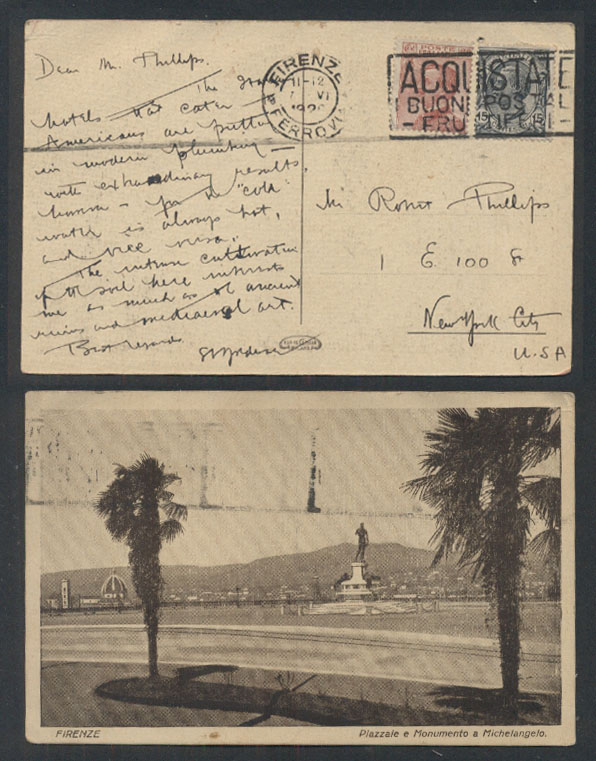 Dear Mr. Phillips.
The
hotels that cater
Americans are putting
in modern plumbing —
with extraordinary results
"cold"
water is always hot,
and vice versa.
The intense cultivation
of the soil here interests
me as much as the ancient
ruins and mediaeval art.
Best regards
FIRENZE
11-12
VI
FERROVIA
ACQUISTATE
BUONI POSTALI
- FRUTTIFERI -
15
15
Mr Robert Phillips
1 E 100 St
New York City
U.S.A
FIRENZE
Piazzale e Monumento a Michelangelo.